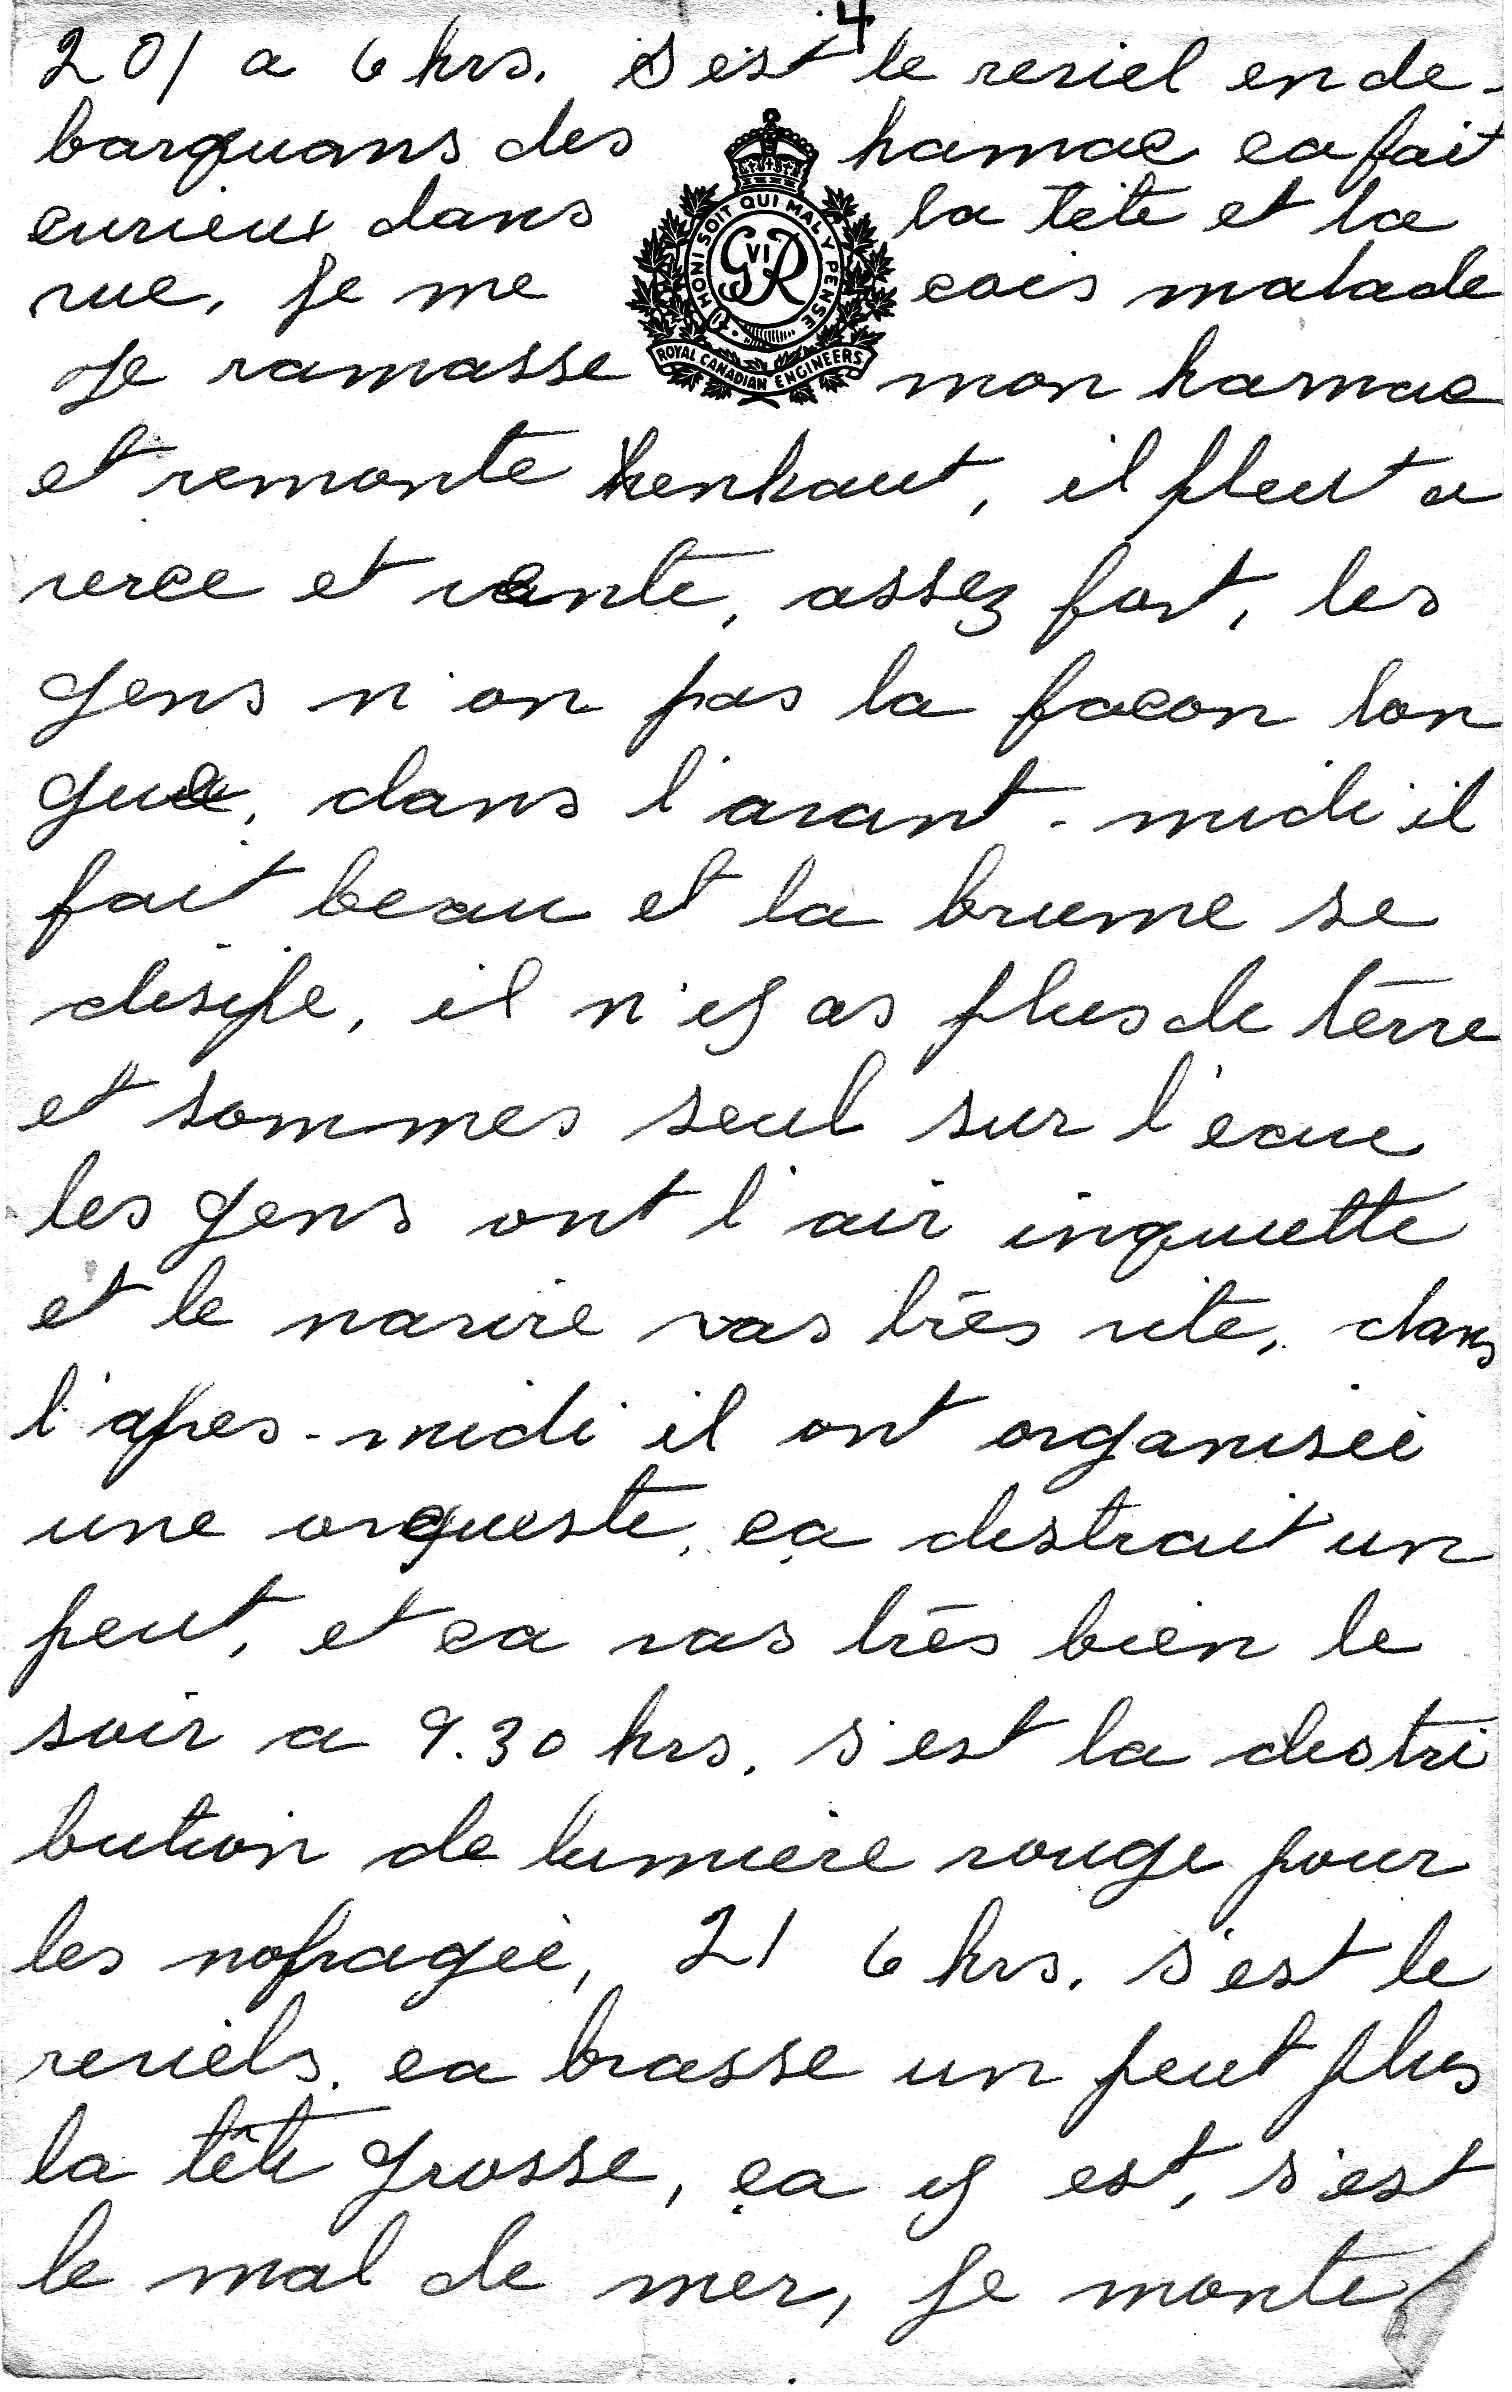 4
20/ a 6 hrs. s'est le reviel en de-
barquans des hamac ca fait
curieux dans la tête et la
vue, je me cois malade
Je ramasse mon hamac
HONI SOIT QUI MAL Y PENSE
G VI R
ROYAL CANADIAN ENGINEERS
et remonte henhaut, il pleut a
verce et vente, assez fort, les
gens n'on pas la facon lon
gue, dans l'avant-midi il
fait beau et la brume se
disipe, il n'y as plus de terre
et sommes seul sur l'eau
les gens ont l'air inquiette
et le navire vas très vite, dans
l'apres-midi il ont organisée
une orqueste, ça distrait un
peut, et ca vas très bien le
soir a 9.30 hrs. s'est la distri
bution de lumiere rouge pour
les nofragée, 21 6 hrs. s'est le
reviels. ca brasse un peut plus
la tête grosse, ça y est, s'est
le mal de mer, je monte